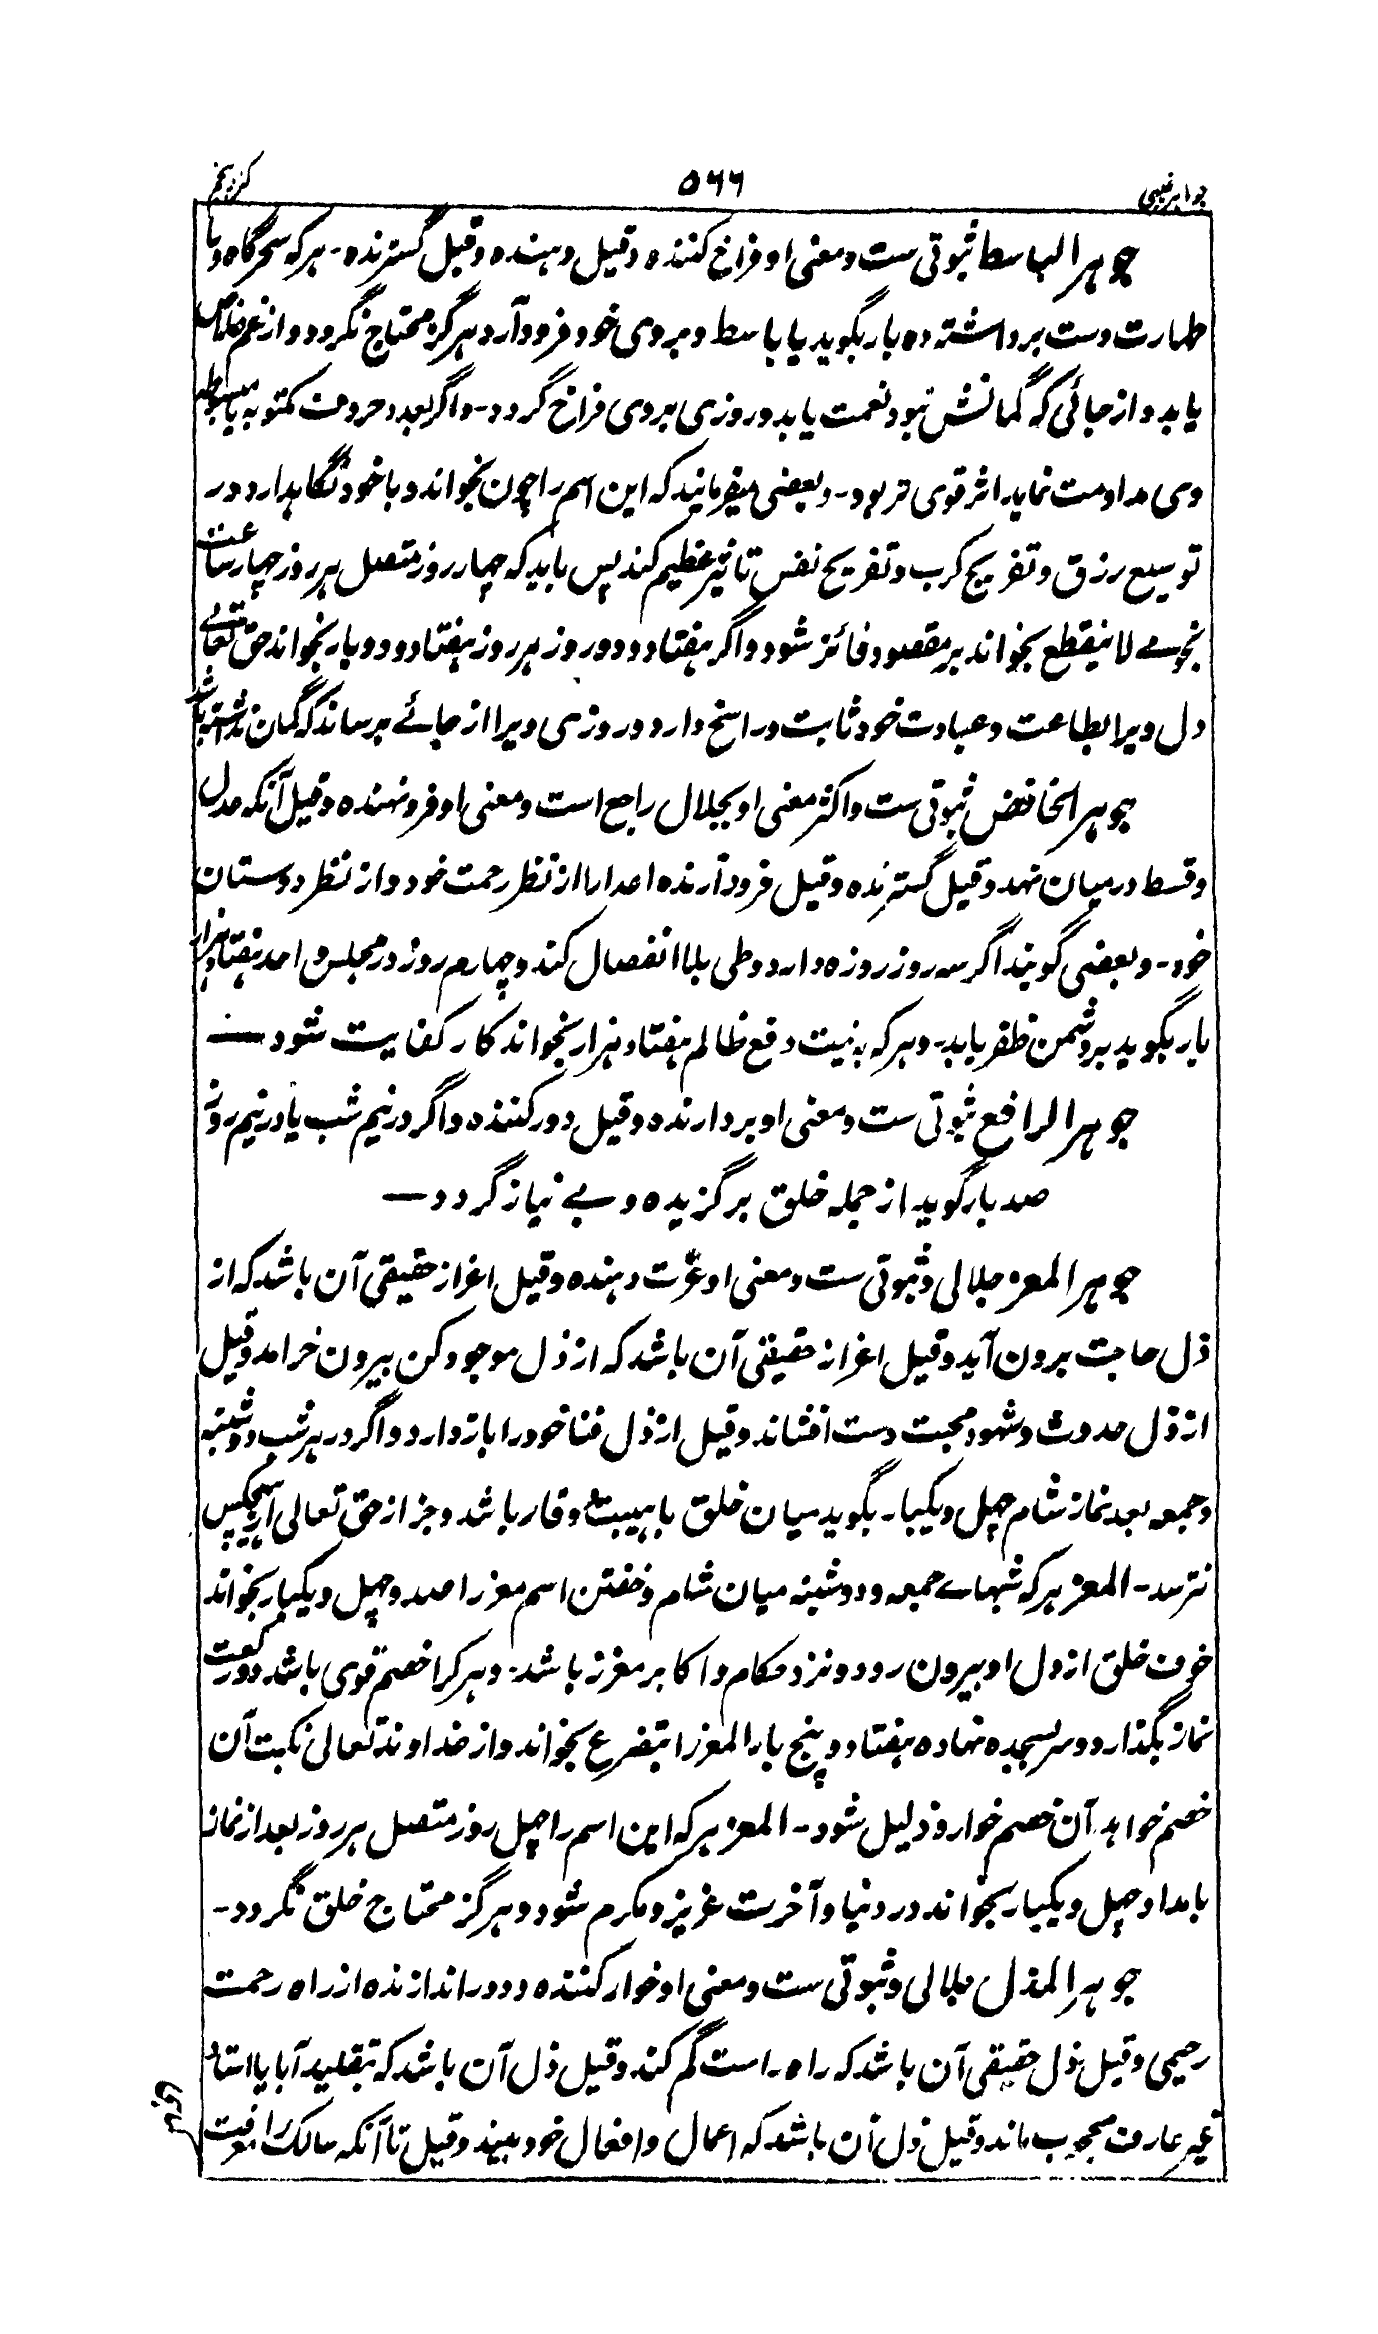 جواهر غیبی ۵۶۶ کنز پنجم
جوهر الباسط ثبوتی ست و معنی او فراخ کننده و قیل دهنده و قیل گسترنده - هر که سحرگاه و با
طهارت دست برداشته ده بار بگوید یا باسط و بروی خود فرود آرد هرگز محتاج نگردد و از غم خلاص
یابد و از جائی که گمانش نبود نعمت یابد و روزی بروی فراخ گردد - و اگر بعدد حروف مکتوبه یا مبسوطه
وی مداومت نماید اثر قوی تر بود - و بعضی میفرمایند که این اسم را چون بخواند و با خود نگاهدارد در
توسیع رزق و تفریج کرب و تفریح نفس تاثیر عظیم کند پس باید که چهار روز متصل هر روز چهار ساعت
نجومے لا ینقطع بخواند بر مقصود فائز شود و اگر هفتاد و دو روز هر روز هفتاد و دو بار بخواند حق تعالے
دل ویرا بطاعت و عبادت خود ثابت و راسخ دارد و روزی ویرا از جائے برساند که گمان نداشته باشد
جوهر الخافض ثبوتی ست و اکثر معنی او بجلال راجع است و معنی او فرو نهنده و قیل آنکه عدل
و قسط درمیان نهد و قیل گسترنده و قیل فرود آرنده اعدا را از نظر رحمت خود و از نظر دوستان
خود - و بعضی گویند اگر سه روز روزه دارد و طی بلا انفصال کند و چهارم روز در مجلس واحد هفتاد هزار
بار بگوید بر دشمن ظفر یابد - و هر که به نیت دفع ظالم هفتاد هزار بخواند کار کفایت شود —
جوهر الرافع ثبوتی ست و معنی او بردارنده و قیل دور کننده و اگر در نیم شب یا در نیم روز
صد بار گوید از جمله خلق برگزیده و بے نیاز گردد —
جوهر المعز جلالی و ثبوتی ست و معنی او عزت دهنده و قیل اعزاز حقیقی آن باشد که از
ذل حاجت برون آید و قیل اعزاز حقیقی آن باشد که از ذل موجود کن بیرون خرامد و قیل
از ذل حدوث و شهود محبت دست افشاند و قیل از ذل فنا خود را باز دارد و اگر در هر شب دوشنبه
و جمعه بعد نماز شام چهل و یکبار بگوید میان خلق با هیبت و وقار باشد و جز از حق تعالی از هیچکس
نترسد - المعز هر که شبهاے جمعه و دوشنبه میان شام و خفتن اسم معز را صد و چهل و یکبار بخواند
خوف خلق از دل او بیرون رود و نزد حکام و اکابر معزز باشد - و هر کرا خصم قوی باشد دو رکعت
نماز بگذارد و سر بسجده نهاده هفتاد و پنج بار المعز را بتضرع بخواند و از خداوند تعالی نکبت آن
خصم خواهد آن خصم خوار و ذلیل شود - المعز هر که این اسم را چهل روز متصل هر روز بعد از نماز
بامداد چهل و یکبار بخواند در دنیا و آخرت عزیز و مکرم شود و هرگز محتاج خلق نگردد -
جوهر المذل جلالی و ثبوتی ست و معنی او خوار کننده و دور اندازنده از راه رحمت
رحیمی و قیل ذل حقیقی آن باشد که راه راست گم کند و قیل ذل آن باشد که بتقلید آبا یا استاد
غیر عارف محجوب ماند و قیل ذل آن باشد که اعمال و افعال خود بیند و قیل تا آنکه سالک را معرفت